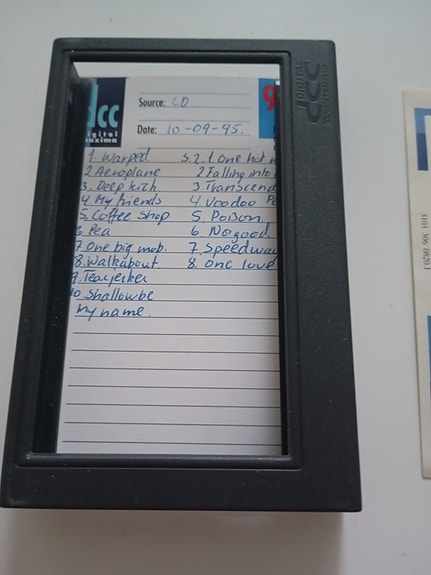 dcc
digital
maxima
Source: CD
Date: 10-09-95.
9
DIGITAL
dcc
1 Warped
2 Aeroplane
3. Deep kick
4 My friends
5. Coffee Shop
6 Pea
7 One big mob.
8. Walkabout
9. Tearjerker
10 Shallow be
my name.
S.2. 1 One hot m
2 Falling into
3 Transcend
4. Voodoo Pe
5. Poison
6. No good
7. Speedway
8. One love
3103 306 0820.1